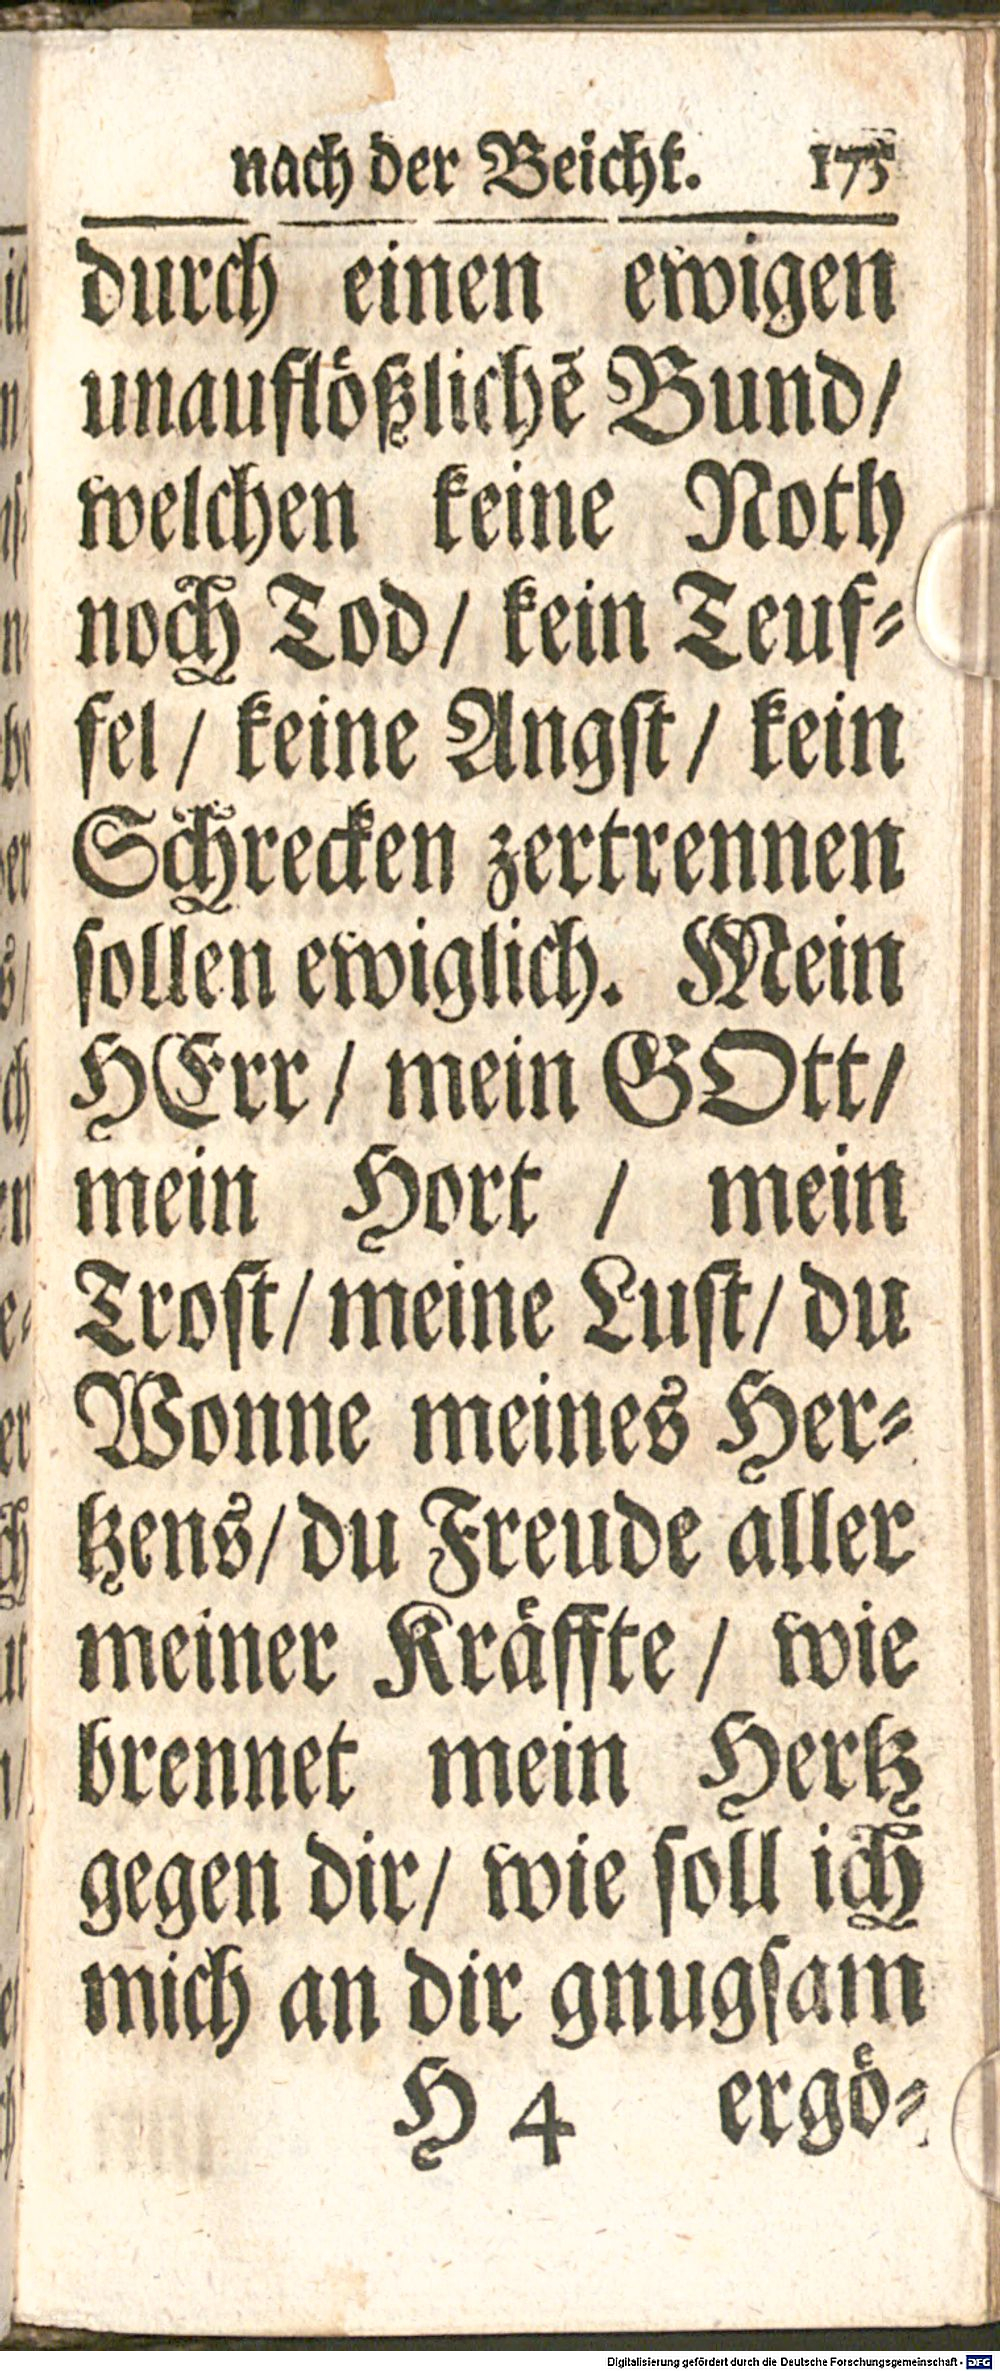 nach der Beicht. 175
durch einen ewigen
unauflößlichē Bund/
welchen keine Noth
noch Tod/ kein Teuf⸗
fel/ keine Angst/ kein
Schrecken zertrennen
sollen ewiglich. Mein
HErr/ mein GOtt/
mein Hort / mein
Trost/ meine Lust/ du
Wonne meines Her⸗
tzens/ du Freude aller
meiner Kräffte/ wie
brennet mein Hertz
gegen dir/ wie soll ich
mich an dir gnugsam
H 4 ergö⸗
Digitalisierung gefördert durch die Deutsche Forschungsgemeinschaft - DFG